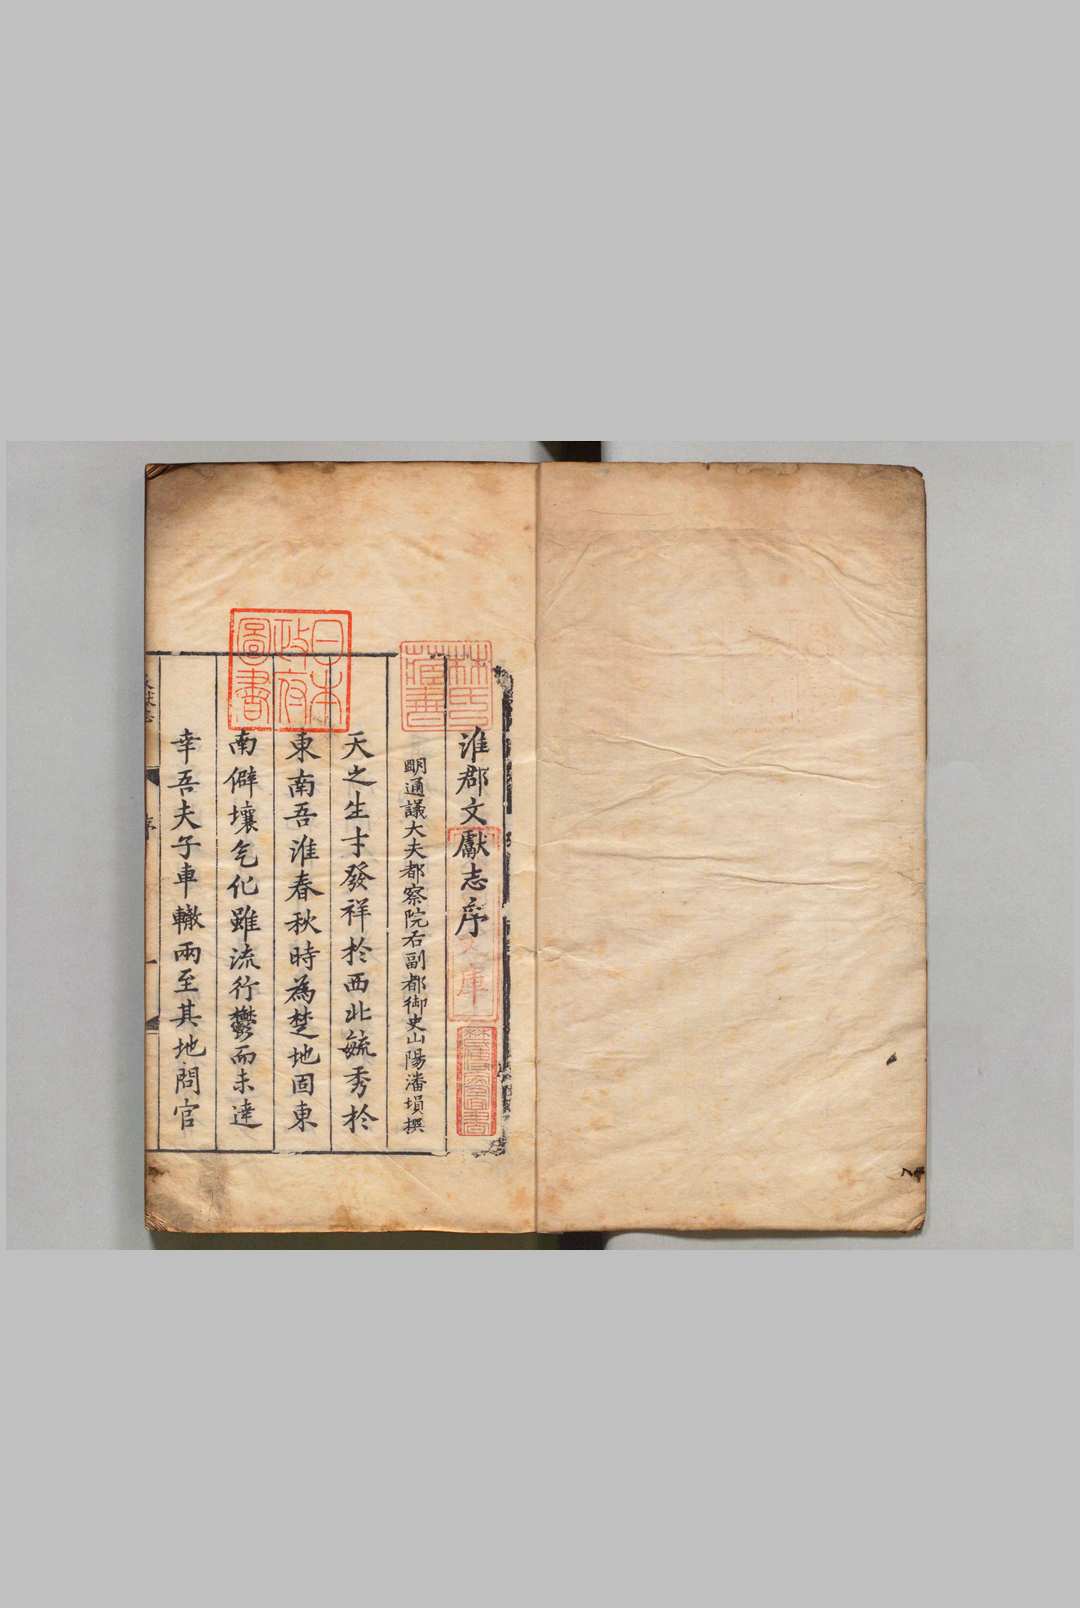 淮郡文獻志序
明通議大夫都察院右副都御史山陽潘塤撰
天之生才發祥於西北毓秀於
東南吾淮春秋時為楚地固東
南僻壤气化雖流行鬱而未達
幸吾夫子車轍兩至其地問官
序
一
林氏
藏書
日本
政府
圖書
文庫